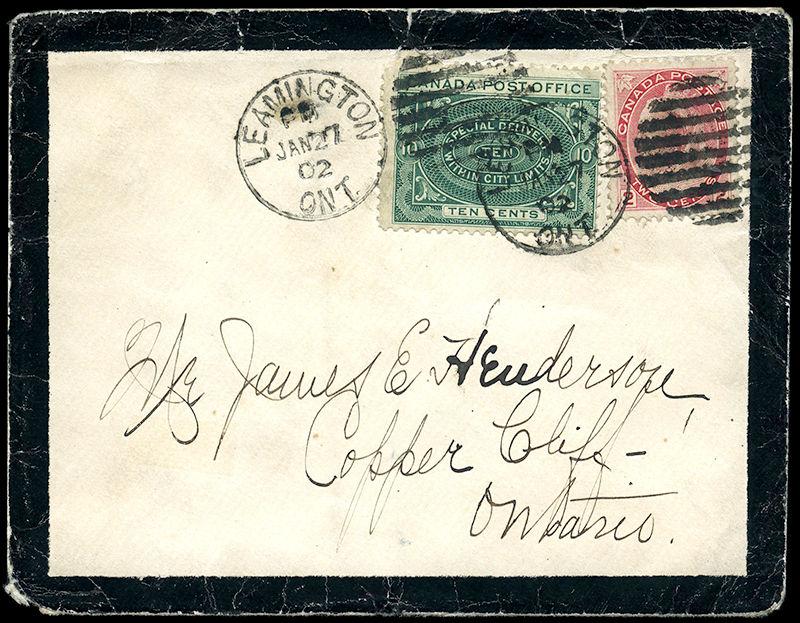 LEAMINGTON
PM
JAN 27
02
ONT.
CANADA POST OFFICE
SPECIAL DELIVERY
10 TEN 10
WITHIN CITY LIMITS
TEN CENTS
CANADA POSTAGE
2 TWO CENTS 2
TON
02
ONT.
Mr James E Henderson
Copper Cliff -
Ontario.